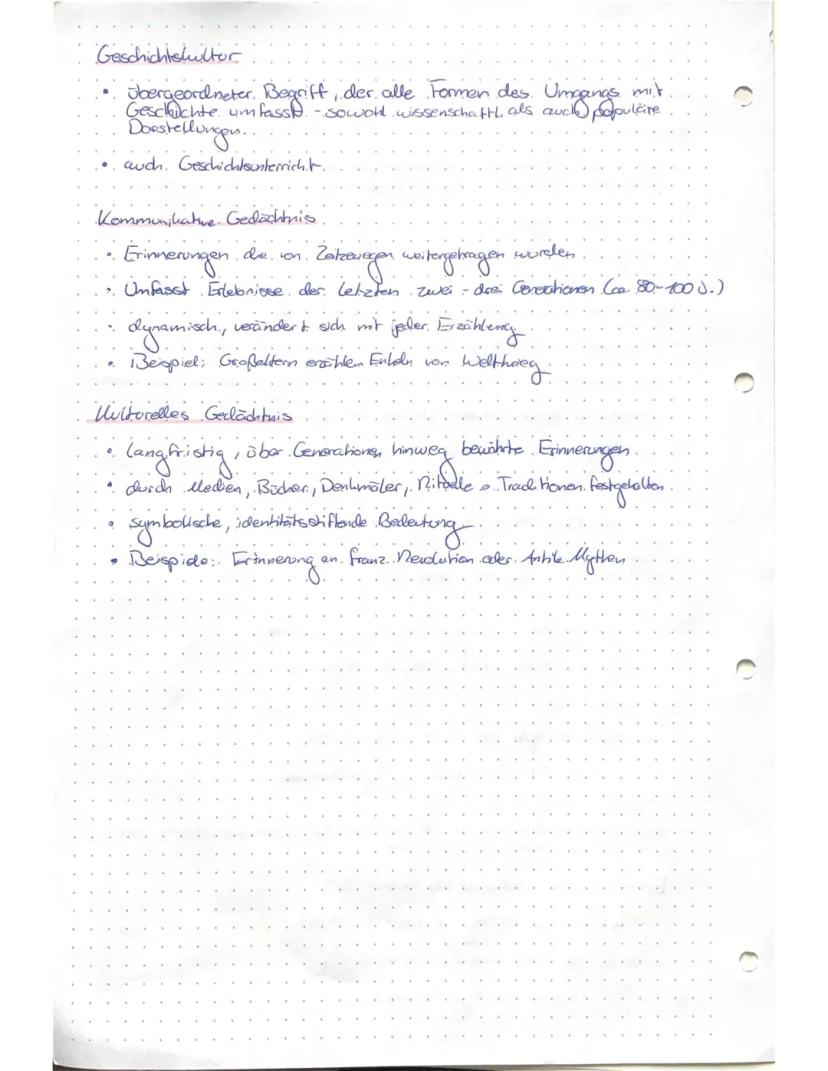 Geschichtskultur
• übergeordneter Begriff, der alle Formen des Umgangs mit
Geschichte umfasst - sowohl wissenschaftl. als auch populäre
Darstellungen.
• auch Geschichtsunterricht
Kommunikative Gedächtnis
• Erinnerungen die von Zeitzeugen weitergetragen wurden
• Umfasst Erlebnisse der letzten zwei - drei Generationen (ca. 80-100 J.)
• dynamisch, verändert sich mit jeder Erzählung
• Beispiel: Großeltern erzählen Enkeln von Weltkrieg
Kulturelles Gedächtnis
• langfristig, über Generationen hinweg bewahrte Erinnerungen
• durch Medien, Bücher, Denkmäler, Rituale o. Traditionen festgehalten
• symbolische, identitätsstiftende Bedeutung
• Beispiele: Erinnerung an franz. Revolution oder Antike Mythen